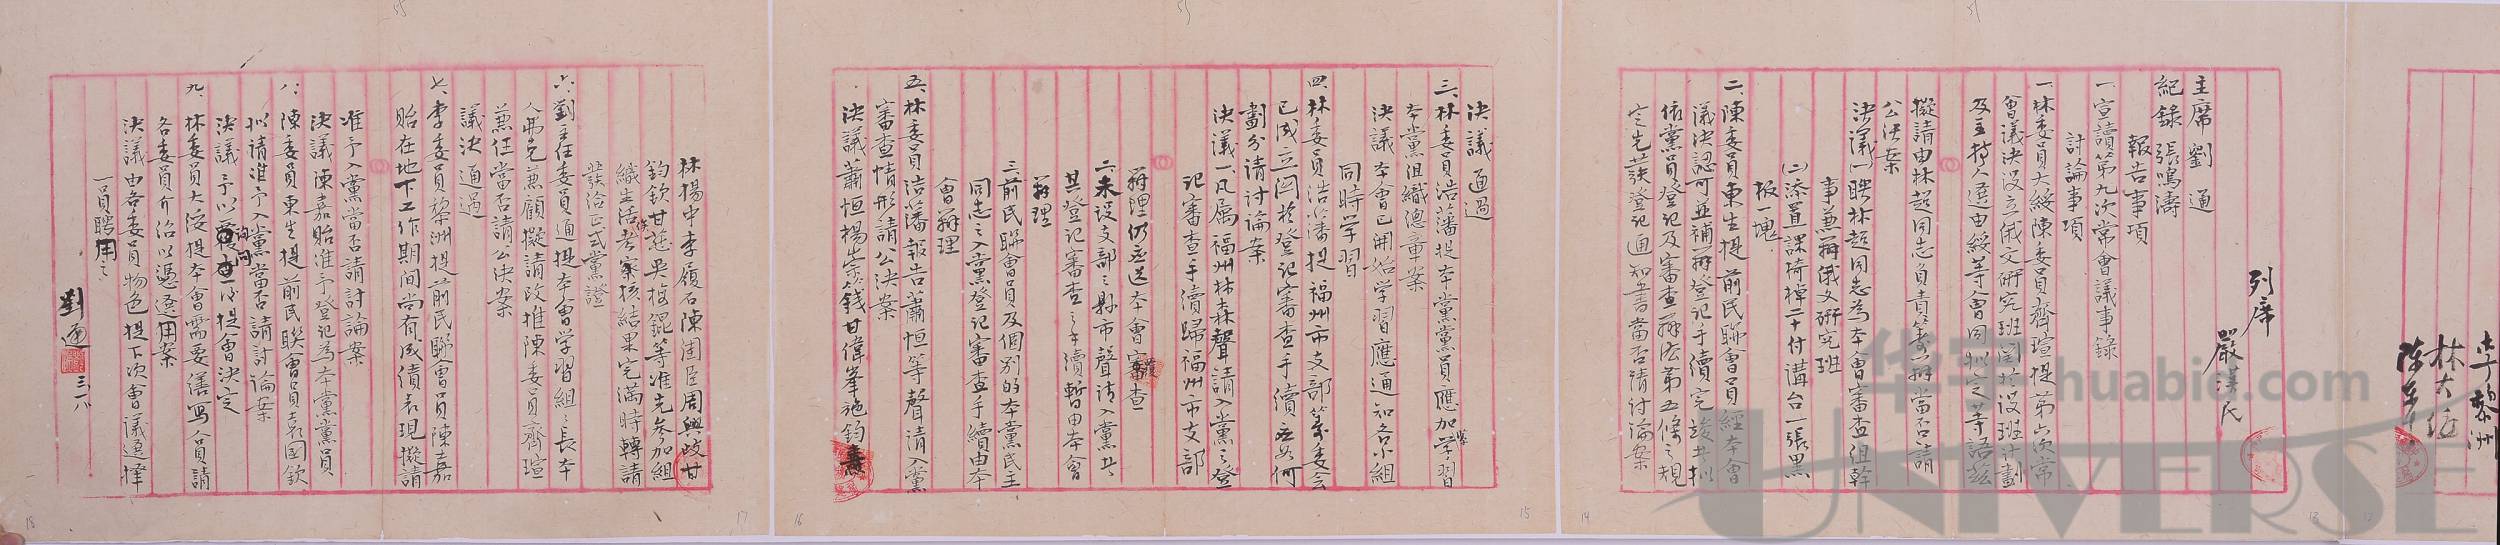 李黎洲
林大綏
列席
嚴洪民
主席 劉通
紀錄 張鳴濤
報告事項
一宣讀第九次常會議事錄
討論事項
一林委員大綏陳委員齊瑄提第六次常
會議決設立俄文研究班関於設班計劃
及主持人選由綏等會同擬定等語茲
擬請由林超同志負責籌辦當否請
公決案
決議(一)聘林超同志為本會審查組幹
事兼辦俄文研究班
(二)添置課椅棹二十付講台一張黑
板一塊
二、陳委員東生提前民聯會員經本會
議決認可並補辦登記手續完竣廿擬
依黨員登記及審查辦法第五條之規
定先發登記通知書當否請討論案
決議 通過
三、林委員浩藩提本黨黨員應加緊學習
本黨組織總章案
決議 本會已開始学習應通知各小組
同時学習
四、林委員浩藩提福州市支部籌委会
已成立関於登記審查手續應如何
劃分請討論案
決議一、凡属福州林森聲請入黨之登
記審查手續歸福州市支部
辦理仍应送本會覆查
二、未設支部之縣市聲请入黨廿
其登記審查之手續暫由本會
辦理
三、前民聯會員及個別的本黨民主
同志之入黨登記審查手續由本
會辦理
五、林委員浩藩報告蕭恒等聲請入黨
審查情形請公決案
決議蕭恒楊崇錢甘偉峯施鈞
林揚中李履石陳周臣周興政甘
鈞欽甘 吳 錕等准先參加組
織生活俟考察核結果完滿時轉請
發给正式黨證
六、劉主任委員通提本會学習組之長本
人弗克兼顧擬請改推陳委員齊瑄
兼任當否請公決案
議決 通過
七、李委員黎洲提前民聯會員陳嘉
貽在地下工作期间尚有成績表現擬請
准予入黨當否請討論案
決議陳嘉貽准予登记為本黨黨員
八、陳委員東生提前民聯會員袁國欽
擬请准予入黨當否請討論案
決議 予以詢问後提會決定
九、林委員大綏提本會需要繕寫人員請
各委員介绍以憑選用案
決議由各委員物色提下次會議選擇
一員聘用之
劉通 三一八
55
51
51
18
17
16
15
14
13
12
华宇
huabid.com
UNIVERSE